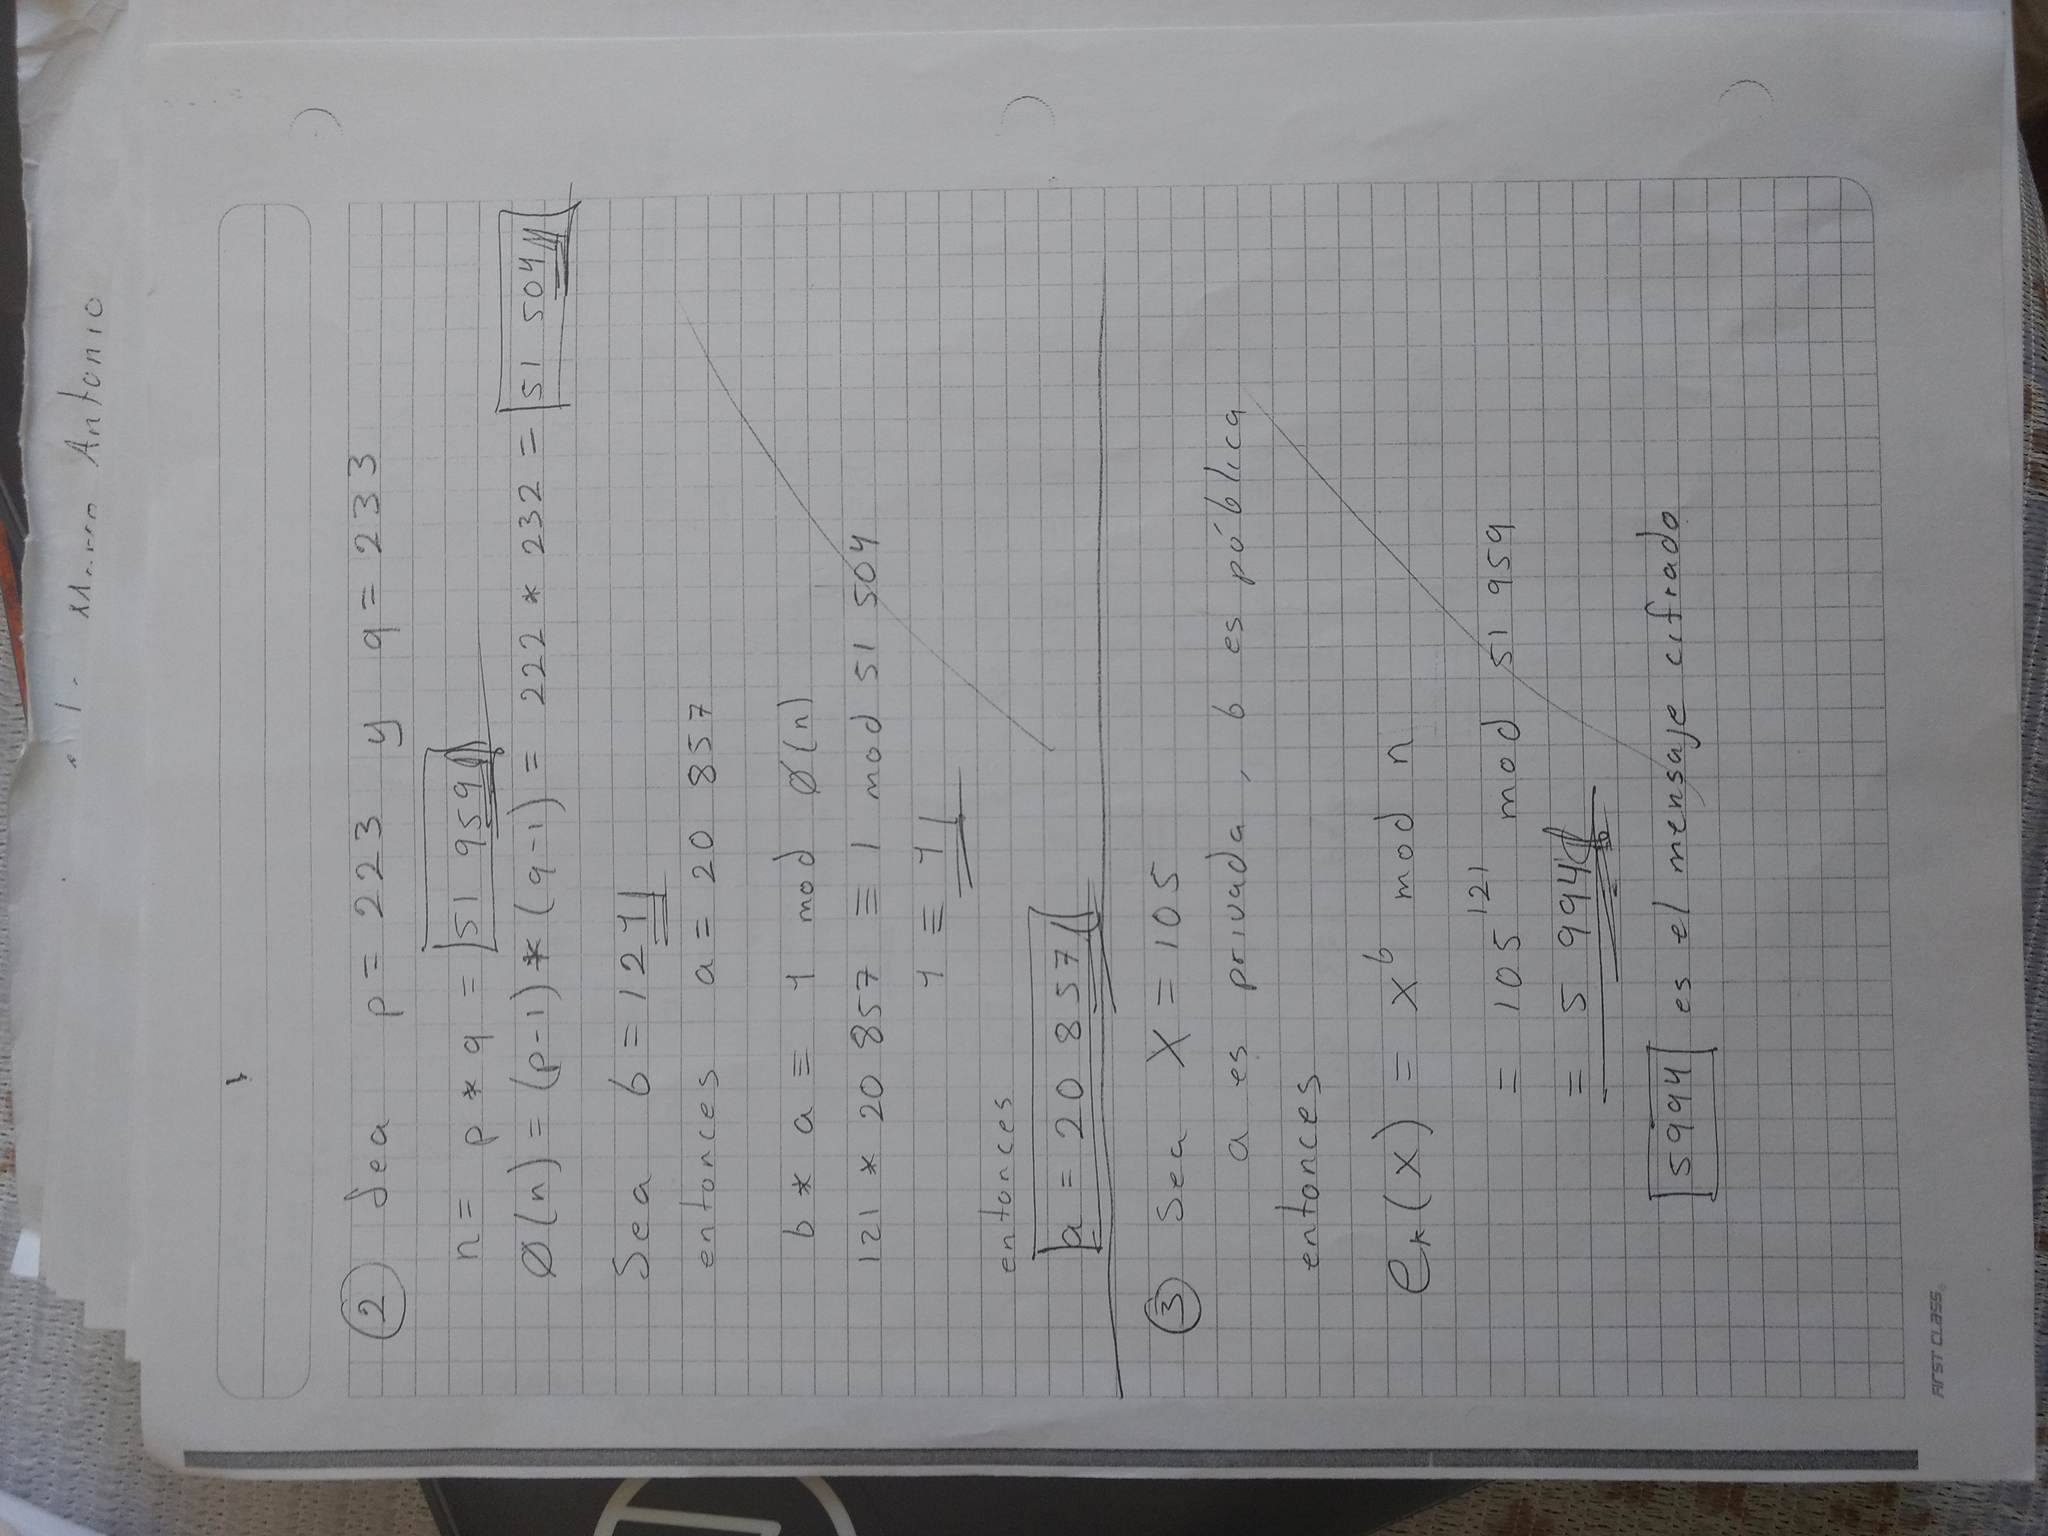 Antonio
② Sea p = 223 y q = 233
n = p * q = 51 959
Ø(n) = (p-1) * (q-1) = 222 * 232 = 51 504
Sea b = 121
entonces a = 20 857
b * a ≡ 1 mod Ø(n)
121 * 20 857 ≡ 1 mod 51 504
1 ≡ 1
entonces
a = 20 857
③ Sea X = 105
a es privada, b es pública
entonces
eₖ(x) = x^b mod n
= 105^121 mod 51 959
= 5 994
5994 es el mensaje cifrado
FIRST CLASS